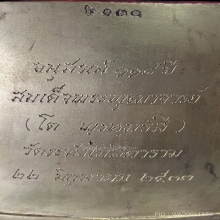 ๖๑๓๑
อนุสรณ์ ๑๑๘ ปี
สมเด็จพระพุฒาจารย์
(โต พฺรหฺมรํสี)
วัดระฆังโฆสิตาราม
๒๒ มิถุนายน ๒๕๓๓